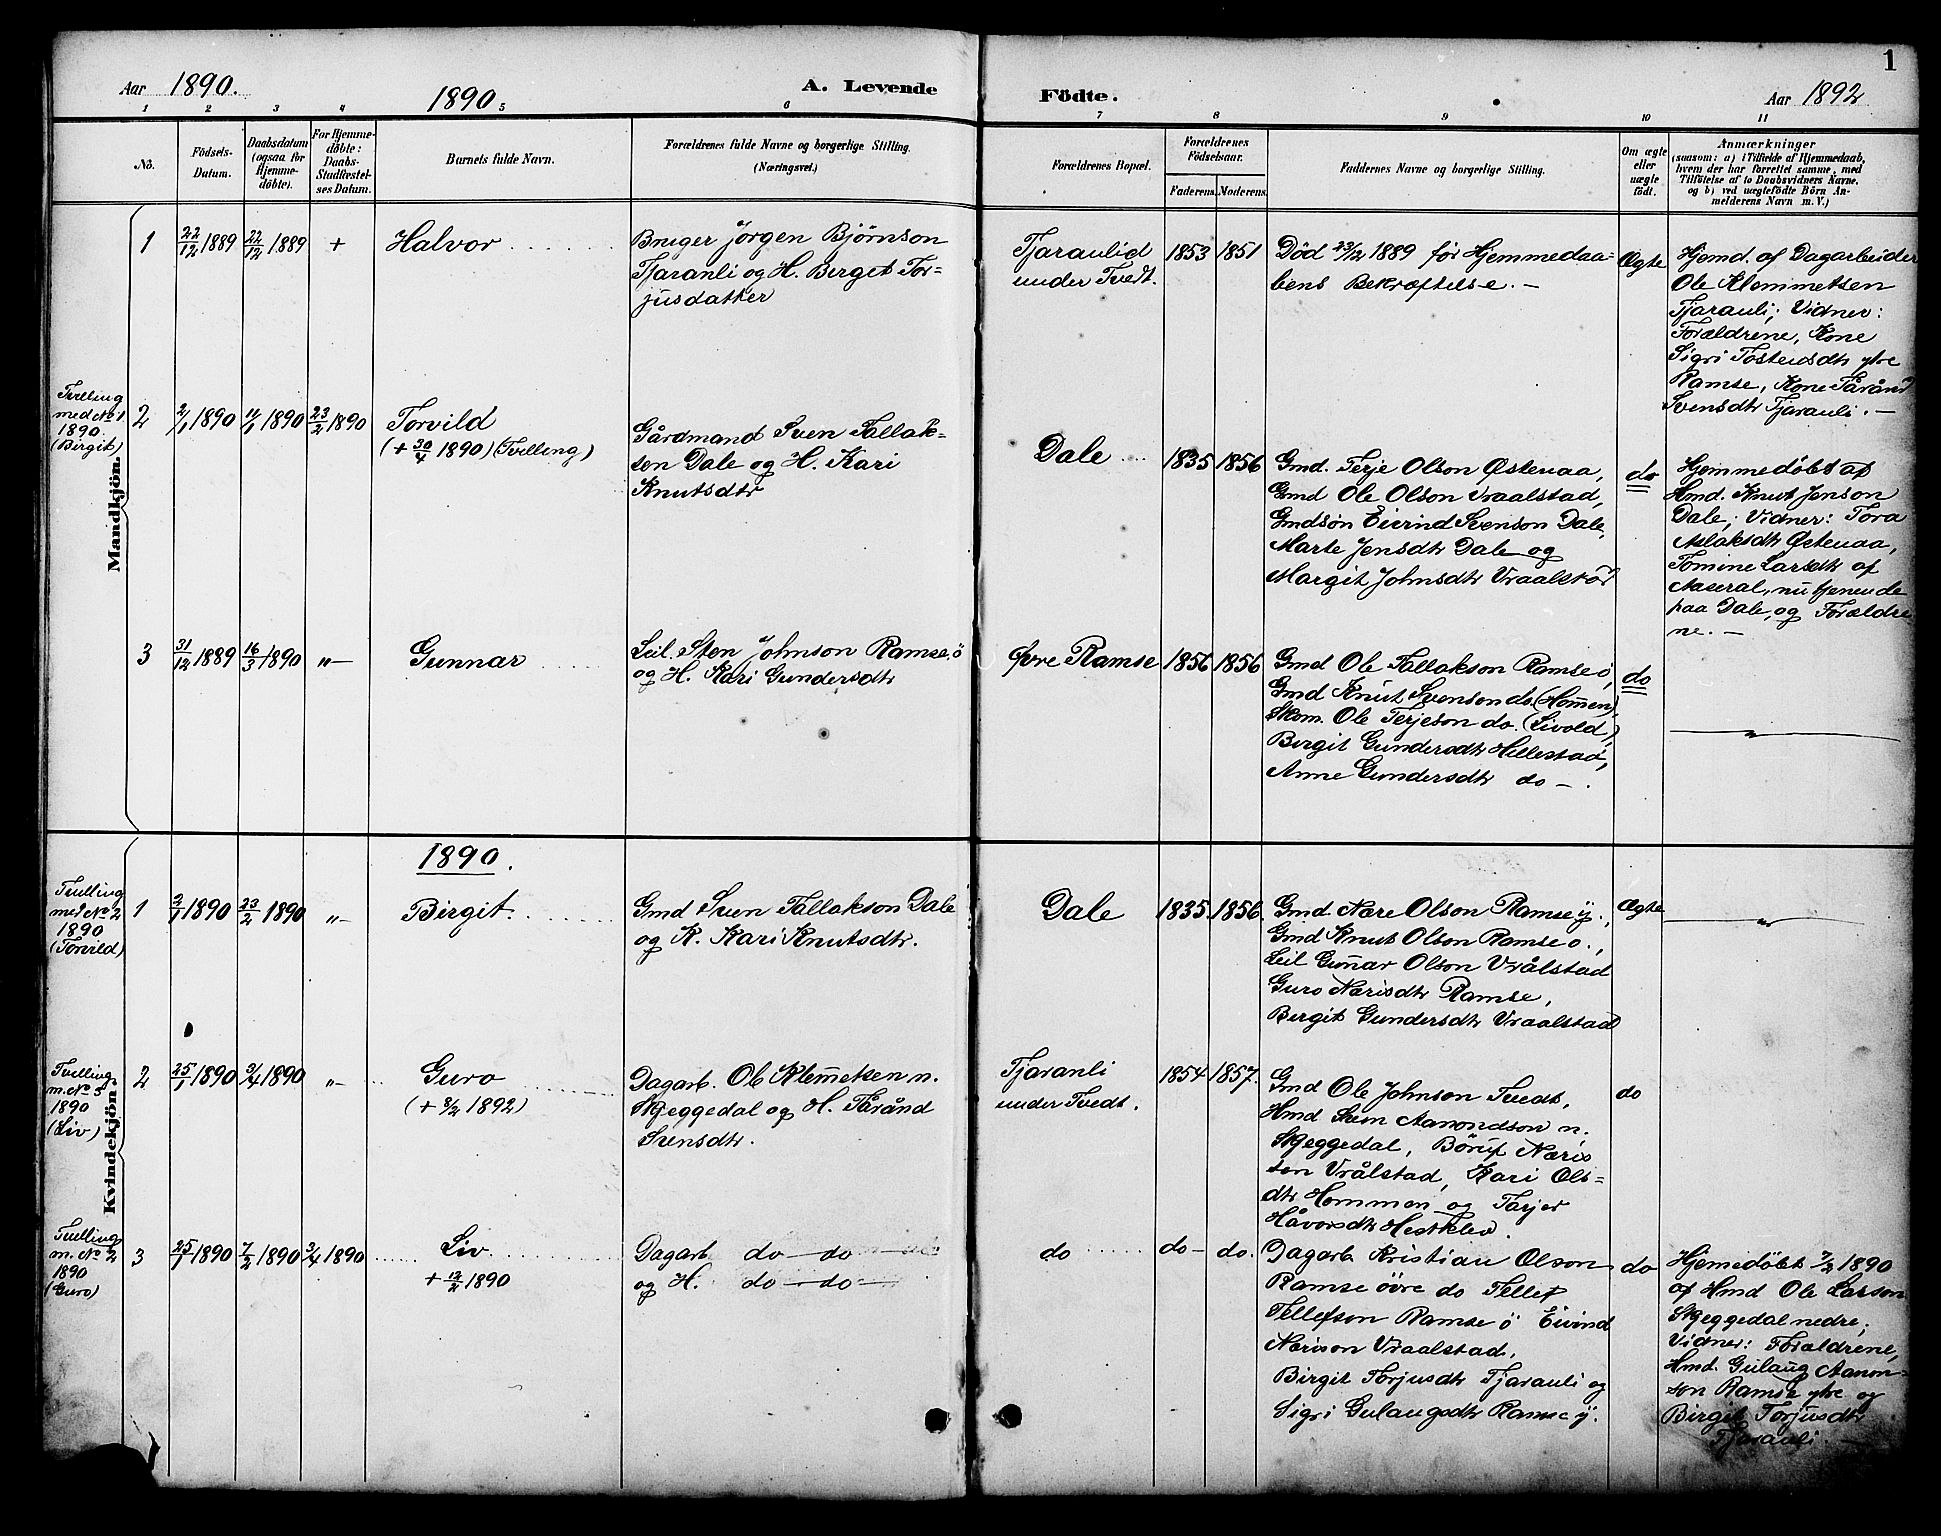 1
Aar 1890.
1890.
A. Levende
Födte.
Aar 1892
1 2 3 4 5 6 7 8 9 10 11
No.
Födsels-
Datum.
Daabsdatum
(ogsaa for
Hjemme-
döbte).
For Hjemme-
döbte:
Daabs-
Stadfæstel-
ses Datum.
Barnets fulde Navn.
Forældrenes fulde Navne og borgerlige Stilling.
(Næringsvei.)
Forældrenes Bopæl.
Forældrenes
Födselsaar.
Faderens. Moderens.
Faddernes Navne og borgerlige Stilling.
Om ægte
eller
uægte
födt.
Anmærkninger
(saasom: a) i Tilfælde af Hjemmedaab,
hvem der har forrettet samme, med
Tilföielse af to Daabsvidners Navne,
og b) ved uægtefödte Börn An-
melderens Navn m. V.)
Mandkjön.
1
22/12 1889
22/12 1889
+
Halvor
Bruger Jörgen Bjørnson
Tjaranli og H. Berget Tor-
jusdatter
Tjaraulid
under Tvedt.
1853 1851
Død 23/12 1889 før Hjemmedaa-
bens Bekræftelse. –
Ægte
Hjemd. af Dagarbeider
Ole Klemmetsen
Tjarauli; Vidner:
Forældrene, Kone
Sigri Tostensdtr ytre
Ramse, Kone Tårånd
Svensdtr Tjarauli. –
Tvilling
med No 1
1890.
(Birgit)
2
2/1 1890
11/1 1890
23/2 1890
Torvild
(+ 30/4 1890) (Tvilling)
Gårdmand Sven Tallak-
sen Dale og H. Kari
Knutsdtr
Dale
1835 1856
Gmd. Terje Olson Østenaa,
Gmd Ole Olson Vraalstad,
Gmdsøn Eivind Svenson Dale,
Marte Jensdtr Dale og
Margit Johnsdtr Vraalstad
do
Hjemmedøbt af
Hmd. Knut Jenson
Dale; Vidner: Tora
Aslaksdtr Østenaa,
Tomine Larsdtr af
Aaseral, nu tjenende
paa Dale, og Forældre
ne. –
3
31/12 1889
16/3 1890
"–
Gunnar
Leil. Sten Johnson Ramse ö
og H. Kari Gundersdtr
Øvre Ramse
1856 1856
Gmd Ole Tallakson Ramse ö,
Gmd Knut Svenson do. (Hommen),
Skom. Ole Terjeson do. (Livold),
Birgit Gundersdtr Hillestad,
Anne Gundersdtr do – .
do
"
Kvindekjön.
1890.
Tvilling
med No 2
1890
(Torvild)
1
2/1 1890
23/2 1890
"–
Birgit.
Gmd Sven Tallakson Dale
og K. Kari Knutsdtr.
Dale
1835 1856.
Gmd. Nære Olson Ramse y.,
Gmd Knut Olson Ramse o.,
Leil Gunnar Olson Vrålstad
Guro Nærisdtr Ramse,
Birgit Gundersdtr Vraalstad
Ægte
"
Tvilling
m. No 3
1890
(Liv)
2
25/1 1890
3/4 1890
"–
Guro
(+ 3/2 1892)
Dagarb. Ole Klemetsen n.
Skjeggedal og H. Tårånd
Svensdtr.
Tjaranli
under Tvedt.
1854 1857.
Gmd Ole Johnson Tvedt,
Hmd Sven Aanondson n.
Skjeggedal, Böruf Næris
son Vrålstad, Kari Ols-
dtr Hommen og Tarjer
Håvorsdtr Hestklev.
do
Tvilling
m. No 2
1890
(Guro)
3
25/1 1890
7/2 1890
3/4 1890
Liv
+ 12/2 1890
Dagarb do – do –
og H. do – do –
do
do – do.
Dagarb Kristian Olson
Ramse övre do Tellef
Tellefson Ramse ö Eivind
Nærison Vraalstad,
Birgit Torjusdtr Tjarauli og
Sigri Gulaugsdtr Ramse ij.
do
Hjemedöbt 7/2 1890
af Hmd Ole Larson
Skjeggedal nedre;
Vidner: Forældrene,
Hmd. Gulaug Aanon-
son Ramse ytre og
Birgit Torjusdtr
Tjarauli. –